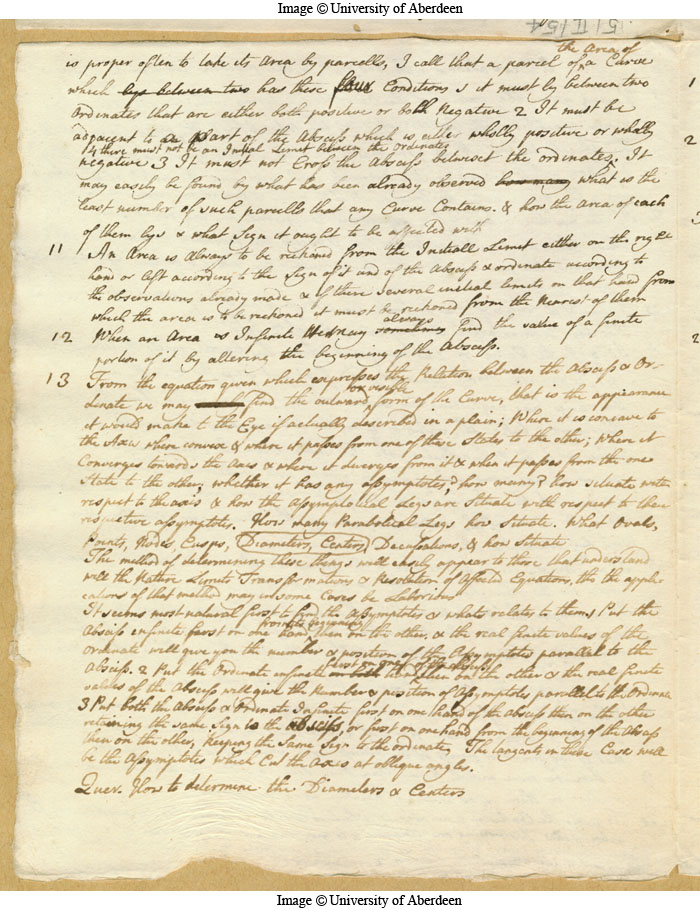 Image © University of Aberdeen
5/II/54
the area of
is proper often to take its Area by parcells, I call that a parcel of a Curve
which lys between two has these four Conditions 1 it must ly between two
Ordinates that are either both positive or both Negative 2 It must be
adjacent to a part of the Absciss which is either wholly positive or wholly
4 there must not be an Initial Limit between the ordinates
negative 3 It must not Cross the Absciss betwixt the ordinates, It
may easily be found by what has been already observed how many what is the
least number of such parcells that any Curve Contains. & how the area of each
of them lys & what Sign it ought to be affected with
11 An Area is always to be reckond from the Initiall Limit either on the right
hand or left according to the Sign of it and of the Absciss & ordinate according to
the observations already made & if there several initial limits on that hand from
which the area is to be reckoned it must be reckond from the Nearest of them
always
12 When an Area is Infinite we may sometimes find the value of a finite
portion of it by altering the beginning of the Absciss.
13 From the equation given which expresses the Relation between the Absciss & Or-
or visible
dinate we may find the outward form of the Curve, that is the appearance
it would make to the Eye if actually described in a plain; Where it is concave to
the Axis where convex & where it passes from one of these States to the other; Where it
Converges towards the Axis & where it diverges from it & when it passes from the one
State to the other; whether it has any assymptotes? how many? how situate with
respect to the axis & how the Assymptotical Legs are Situate with respect to their
respective assymptotes. How many Parabolical Legs how Situate. What Ovals,
Points, Nodes, Cusps, (Diameters, Centers) Decussations, & how Situate
The method of determining these things will easily appear to those that understand
well the Nature Limits Transformations & Resolution of Affected Equations, tho the appli-
cations of that method may in some Cases be Laborious
It seems most natural first to find the Assymptotes & whats relates to them 1 Put the
from the beginning
Absciss infinite first on one hand then on the other, & the real finite values of the
ordinate will give you the number & position of the Assymptotes parallel to the
first on one side of the absciss
Absciss. 2 Put the Ordinate infinite on both then on the other & the real finite
values of the Absciss will give the Number & position of Assymptotes parallel to the Ordinate
3 Put both the Absciss & Ordinate Infinite first on one hand of the absciss then on the other
retaining the same Sign to the absciss, or first on one hand from the beginning of the Absciss
then on the other, keeping the same Sign to the ordinate, The tangents in these Case will
be the Assymptotes which Cut the Axis at oblique angles.
Quer. How to determine the Diameters & Centers
1
2
3
2
Image © University of Aberdeen